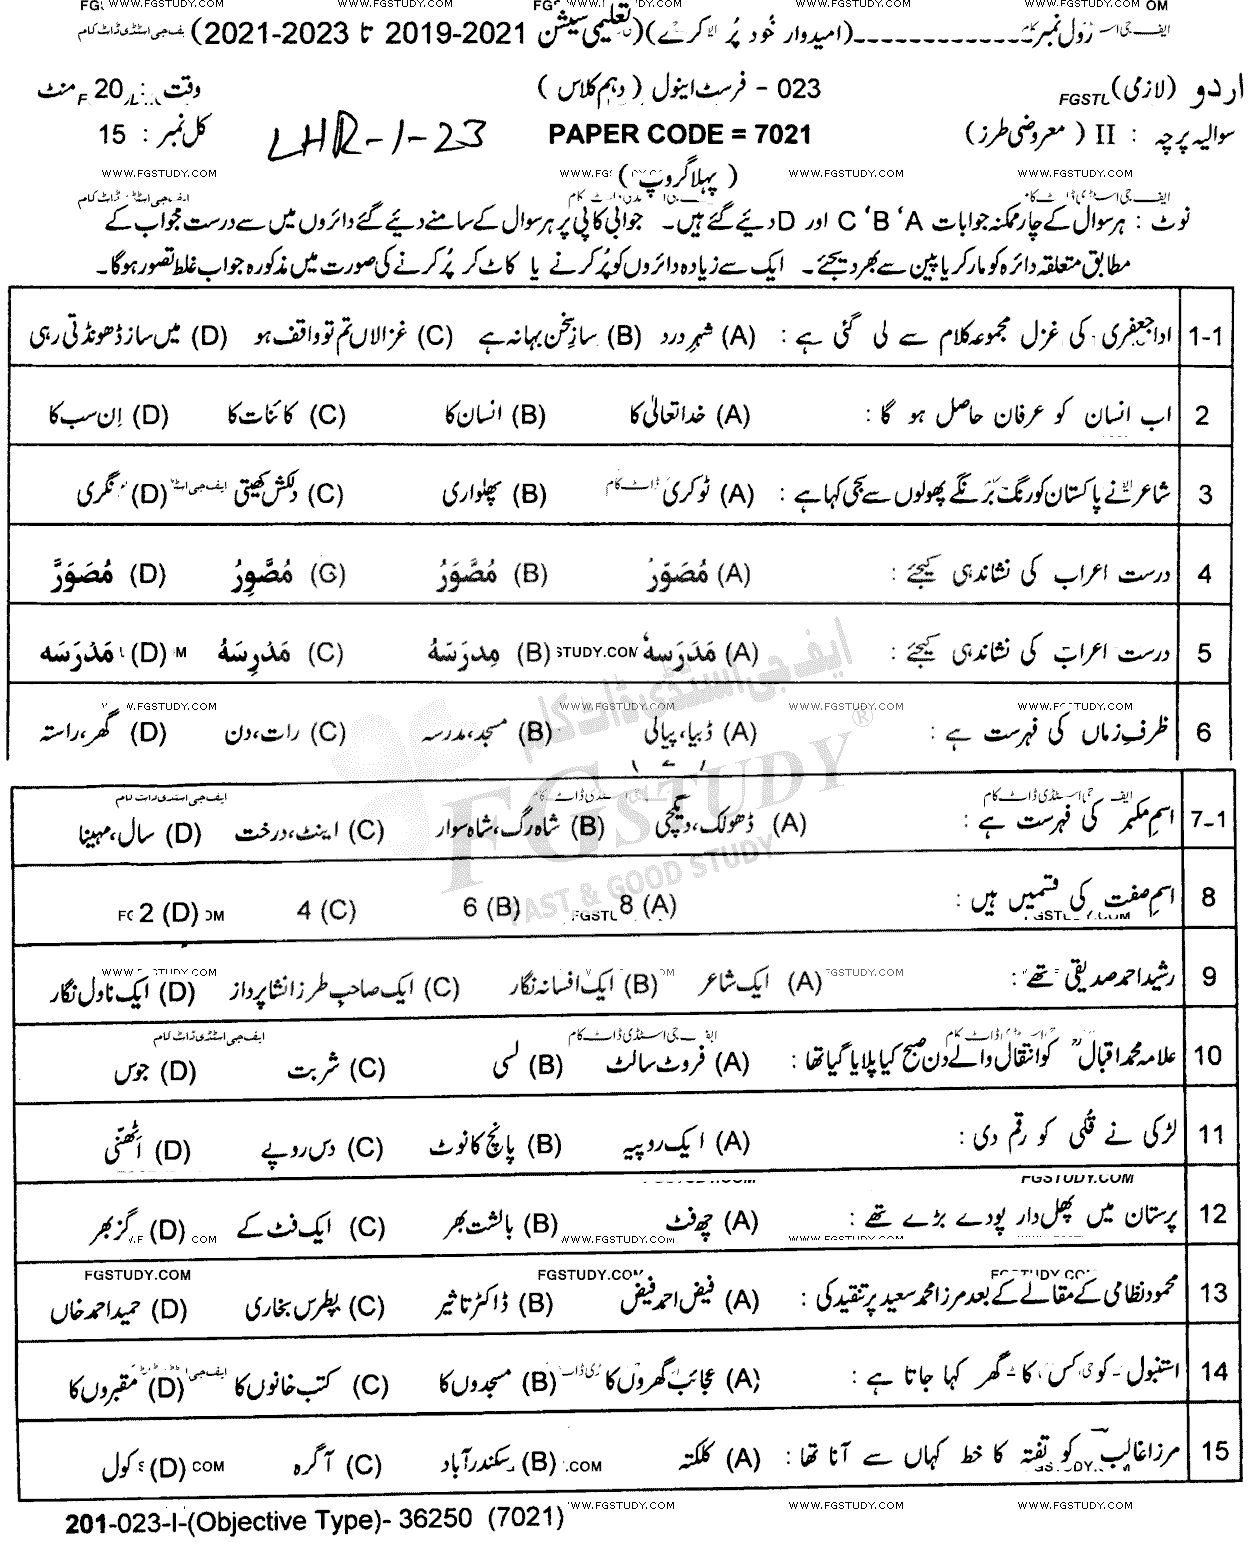 رول نمبر ـــــــــــــ (امیدوار خود پُر کرے) (تعلیمی سیشن 2021-2019 تا 2023-2021)
اردو (لازمی) 023 - فرسٹ اینول (دہم کلاس) وقت : 20 منٹ
سوالیہ پرچہ : II (معروضی طرز) PAPER CODE = 7021 LHR-1-23 کل نمبر : 15
(پہلا گروپ)
نوٹ : ہر سوال کے چار ممکنہ جوابات A ، B ، C اور D دیئے گئے ہیں۔ جوابی کاپی پر ہر سوال کے سامنے دیئے گئے دائروں میں سے درست جواب کے
مطابق متعلقہ دائرہ کو مارکر یا پین سے بھر دیجئے۔ ایک سے زیادہ دائروں کو پُر کرنے یا کاٹ کر پُر کرنے کی صورت میں مذکورہ جواب غلط تصور ہوگا۔
1-1 ادا جعفری کی غزل مجموعہ کلام سے لی گئی ہے : (A) شہر درد (B) سازِ سخن بہانہ ہے (C) غزالاں تم تو واقف ہو (D) میں ساز ڈھونڈتی رہی
2 اب انسان کو عرفان حاصل ہو گا : (A) خدا تعالیٰ کا (B) انسان کا (C) کائنات کا (D) اِن سب کا
3 شاعر نے پاکستان کو رنگ برنگے پھولوں سے سجی کہا ہے : (A) ٹوکری (B) پھلواری (C) دلکش کھیتی (D) نگری
4 درست اعراب کی نشاندہی کیجئے : (A) مُصَوَرْ (B) مُصَّوَرُ (C) مُصَّوِرُ (D) مُصَوَرَّ
5 درست اعراب کی نشاندہی کیجئے : (A) مَدَرَسہ (B) مِدرَسَہُ (C) مَدْرِسَہُ (D) مَدْرَسَہ
6 ظرفِ زماں کی فہرست ہے : (A) ڈبیا، پیالی (B) مسجد، مدرسہ (C) رات، دن (D) گھر، راستہ
7-1 اسمِ مکبر کی فہرست ہے : (A) ڈھولک، دیگچی (B) شاہ رگ، شاہ سوار (C) اینٹ، درخت (D) سال، مہینا
8 اسمِ صفت کی قسمیں ہیں : (A) 8 (B) 6 (C) 4 (D) 2
9 رشید احمد صدیقی تھے : (A) ایک شاعر (B) ایک افسانہ نگار (C) ایک صاحبِ طرز انشا پرداز (D) ایک ناول نگار
10 علامہ محمد اقبالؒ کو انتقال والے دن صبح کیا پلایا گیا تھا : (A) فروٹ سالٹ (B) لسی (C) شربت (D) جوس
11 لڑکی نے قُلی کو رقم دی : (A) ایک روپیہ (B) پانچ کا نوٹ (C) دس روپے (D) اٹھنّی
12 پرستان میں پھل دار پودے بڑے تھے : (A) چھ فٹ (B) بالشت بھر (C) ایک فٹ کے (D) گز بھر
13 محمود نظامی کے مقالے کے بعد مرزا محمد سعید پر تنقید کی : (A) فیض احمد فیض (B) ڈاکٹر تاثیر (C) پطرس بخاری (D) حمید احمد خاں
14 استنبول کو کس کا گھر کہا جاتا ہے : (A) عجائب گھروں کا (B) مسجدوں کا (C) کتب خانوں کا (D) مقبروں کا
15 مرزا غالب کو تفتہ کا خط کہاں سے آنا تھا : (A) کلکتہ (B) سکندر آباد (C) آگرہ (D) کول
201-023-I-(Objective Type)- 36250 (7021)
ایف جی اسٹڈی ڈاٹ کام
FGSTUDY®
FAST & GOOD STUDY
WWW.FGSTUDY.COM